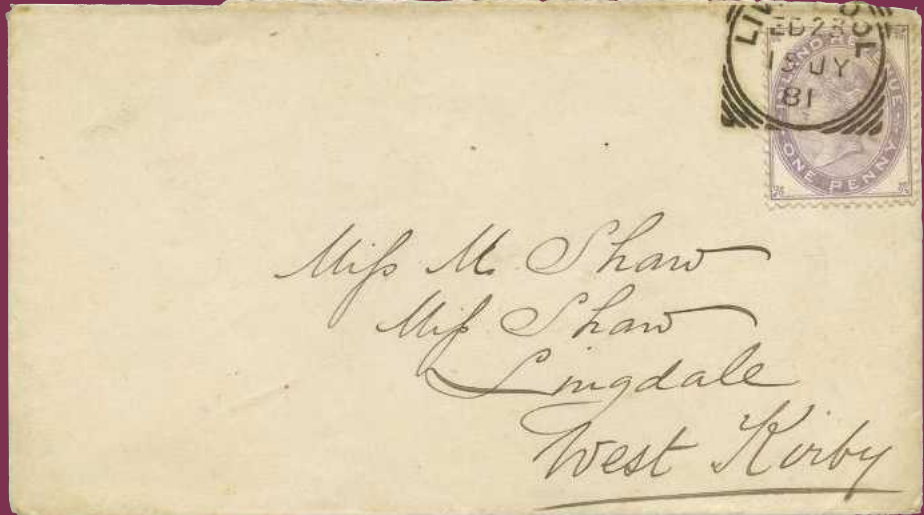 LIVERPOOL
ED 28
18 JY
81
INLAND REVENUE
ONE PENNY
Miſs M. Shaw
Miſs Shaw
Lingdale
West Kirby